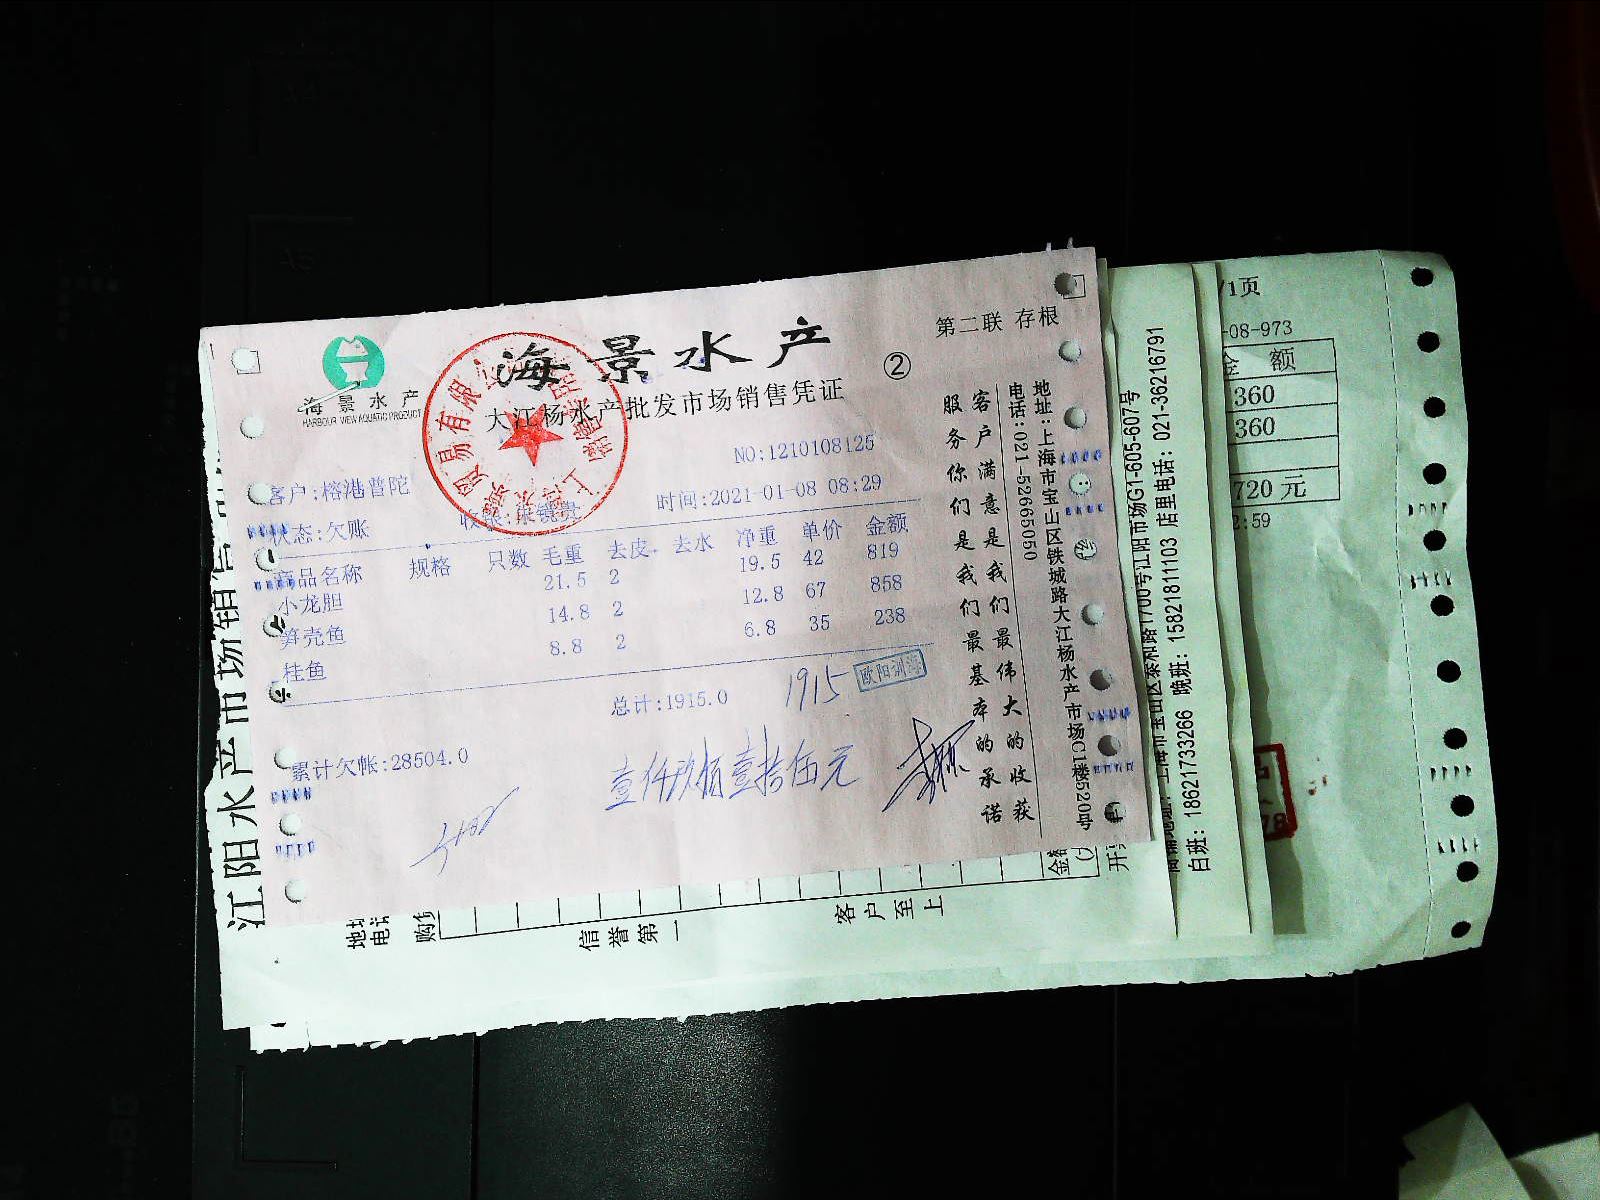 海景水产
HARBOUR VIEW AQUATIC PRODUCT
海景水产
大江杨水产批发市场销售凭证
②
第二联 存根
NO:1210108125
客户:榕港普陀
时间:2021-01-08 08:29
状态:欠账
商品名称 规格 只数 毛重 去皮 去水 净重 单价 金额
小龙胆 21.5 2 19.5 42 819
笋壳鱼 14.8 2 12.8 67 858
桂鱼 8.8 2 6.8 35 238
总计:1915.0
1915
累计欠帐:28504.0
壹仟玖佰壹拾伍元
客户满意是我们最伟大的收获
服务你们是我们最基本的承诺
地址:上海市宝山区铁城路大江杨水产市场C1楼520号
电话:021-52665050
江阳水产市场销售
信誉第一
客户至上
地址
电话
购
金额
开
G1-605-607号
白班: 18621733266 晚班: 15821811103 店里电话: 021-36216791
/1页
-08-973
金 额
360
360
720 元
2:59